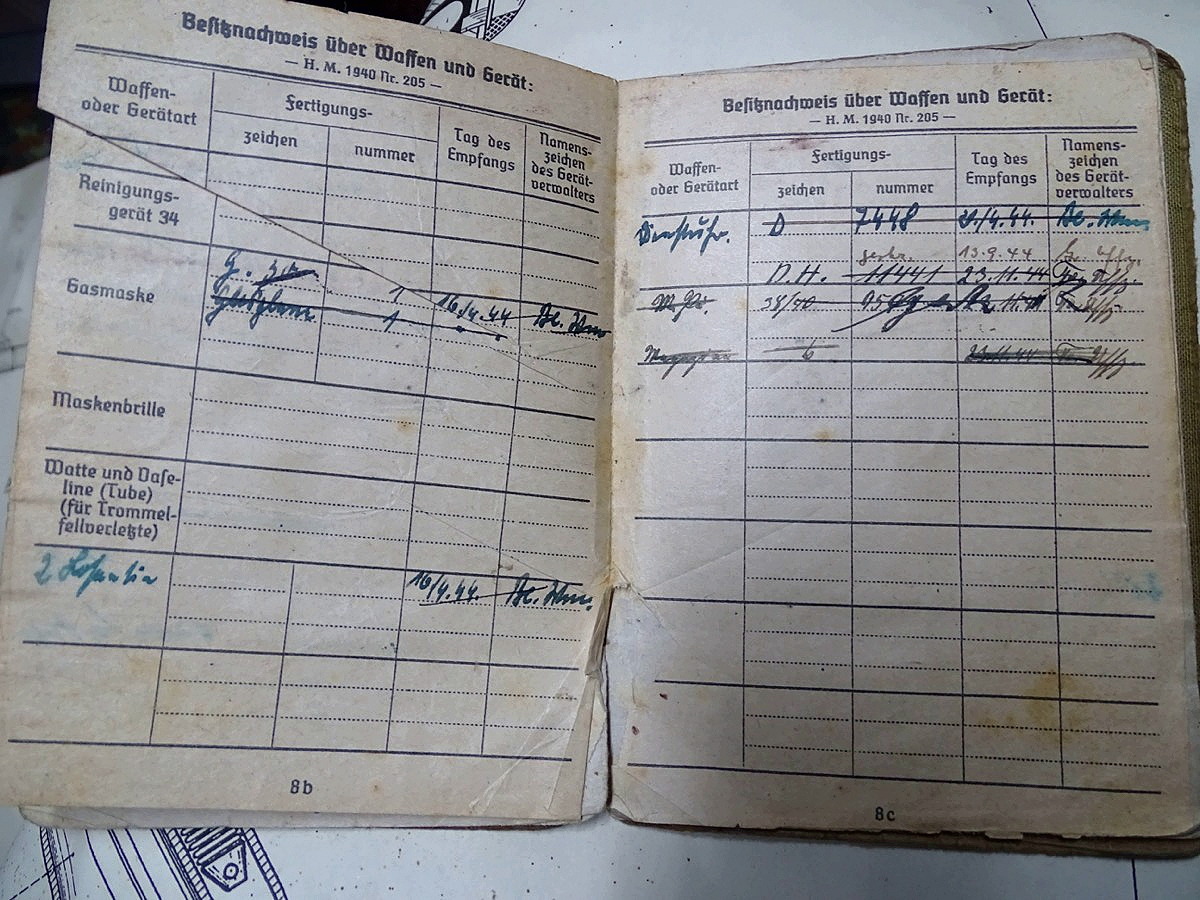 Besitznachweis über Waffen und Gerät:
— H. M. 1940 Nr. 205 —
Waffen-
oder Gerätart
Fertigungs-
zeichen
nummer
Tag des
Empfangs
Namens-
zeichen
des Gerät-
verwalters
Reinigungs-
gerät 34
Gasmaske
1
1
16/4.44
Maskenbrille
Watte und Vase-
line (Tube)
(für Trommel-
fellverletzte)
2
16/4.44.
8b
Besitznachweis über Waffen und Gerät:
— H. M. 1940 Nr. 205 —
Waffen-
oder Gerätart
Fertigungs-
zeichen
nummer
Tag des
Empfangs
Namens-
zeichen
des Gerät-
verwalters
Dienstuhr. D 7448
13.9.44
D.H. 11441 23.11.44
38/40
6 23.11.44
8c